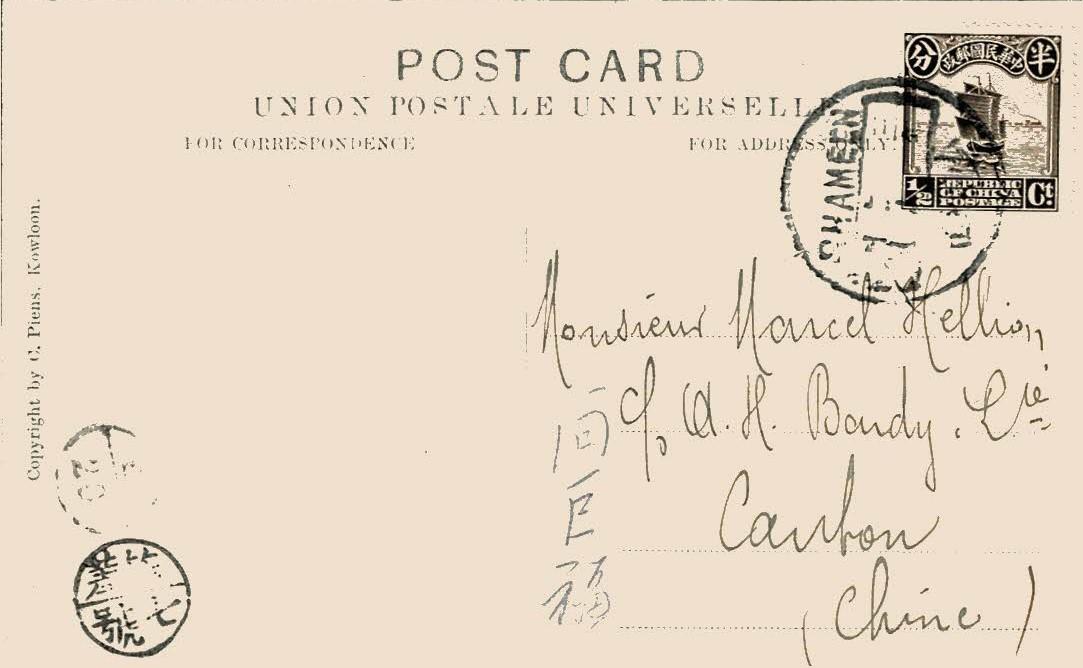 POST CARD
UNION POSTALE UNIVERSELLE
FOR CORRESPONDENCE
FOR ADDRESS ONLY.
半
中華民國郵政
分
1/2
REPUBLIC
OF CHINA
POSTAGE
Ct.
SHAMEEN
Copyright by C. Piens, Kowloon.
Monsieur Marcel Hellion
c/o A. H. Bardy. Cie
Canton
(Chine)
福
20
號